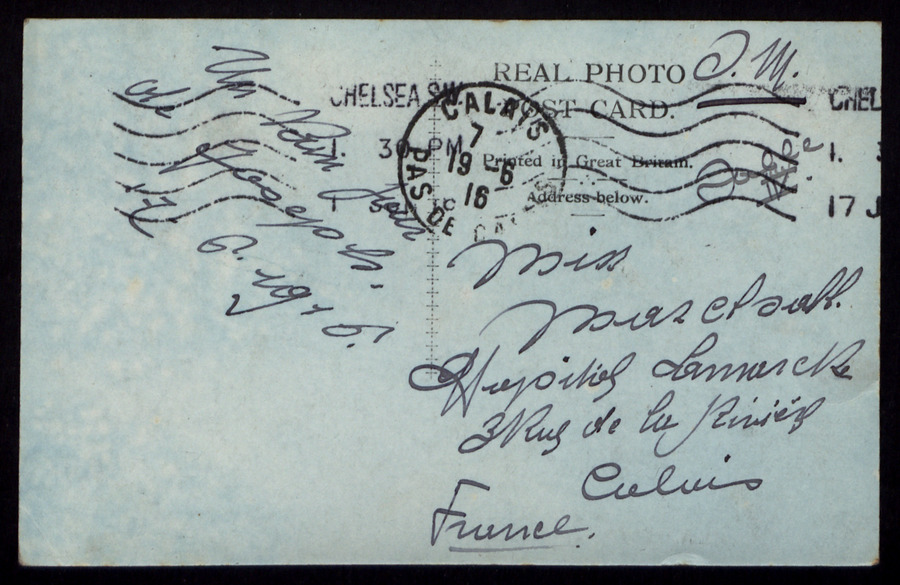 REAL PHOTO
POST CARD.
Printed in Great Britain.
Address below.
S. M.
CHELSEA S.W.
1 30 PM
CHEL
1. 3
17 J
CALAIS
7
19 -6
16
PAS DE CALAIS
Un
Joseph.
17. 6. 1916.
Miss
Marchall.
Hopital Lamarck
3 Rue de la Rivièr
Calais
France.